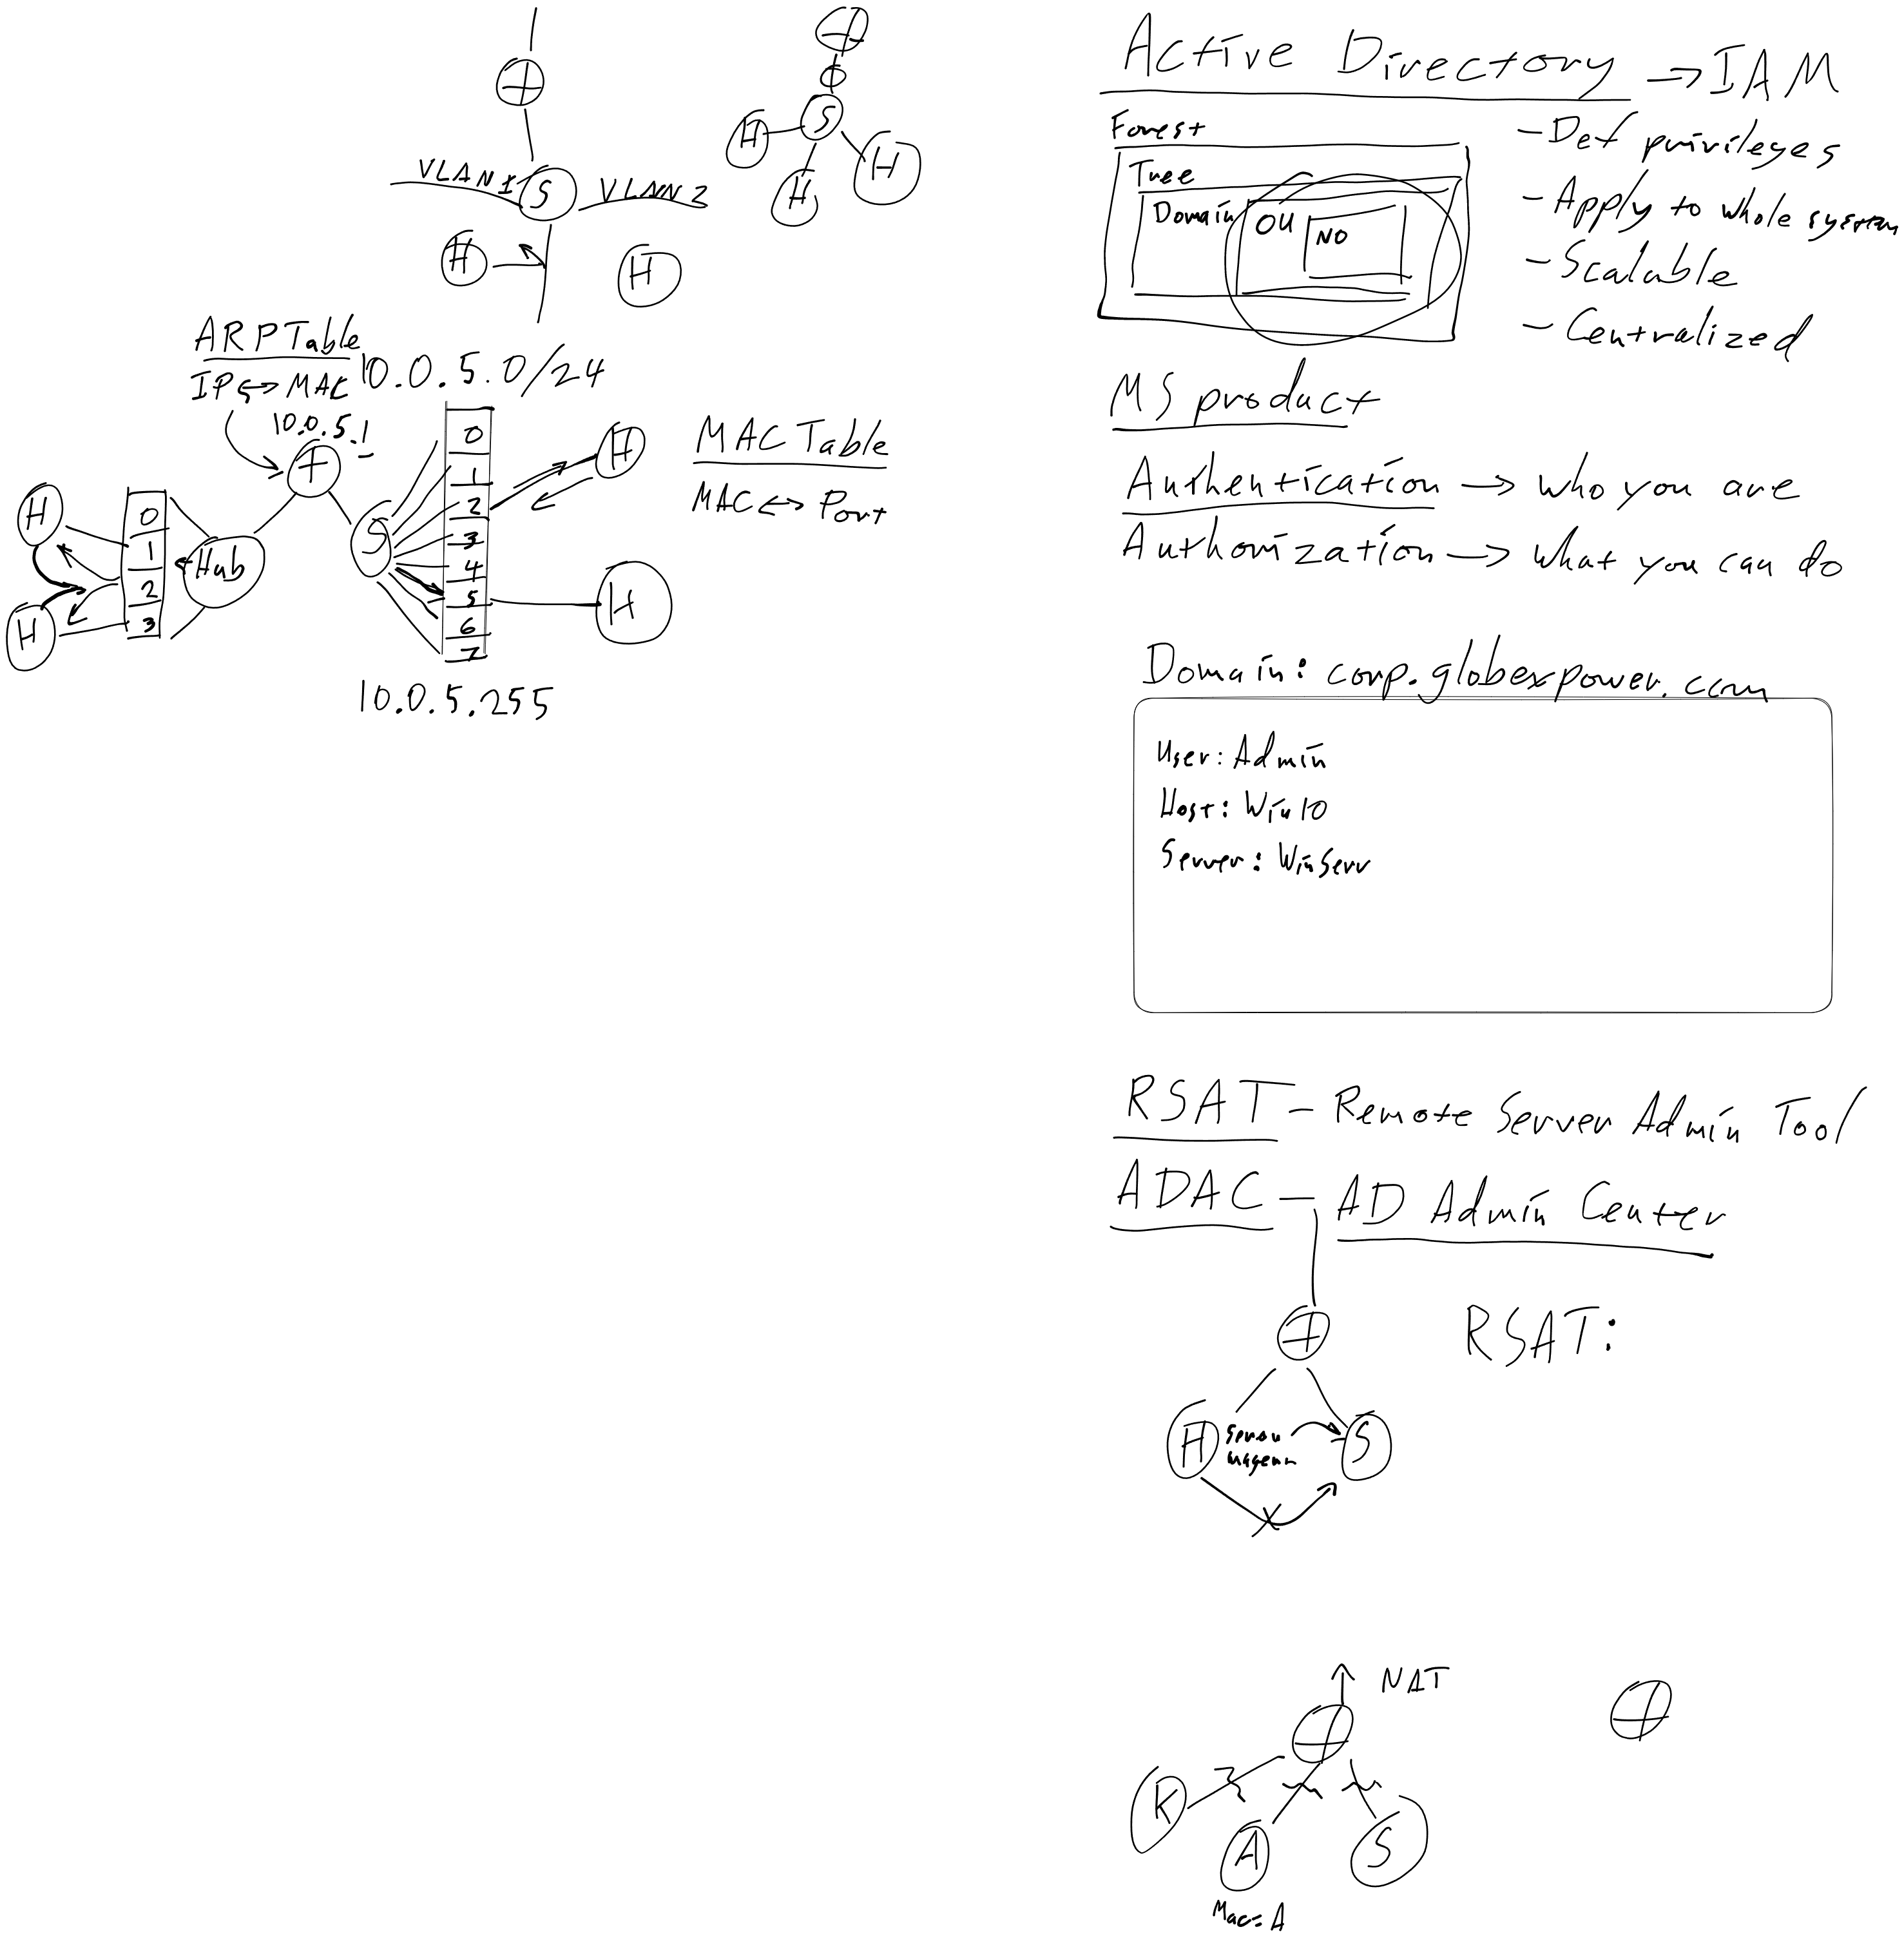 VLAN1 S VLAN 2
H
H
S
H
H
H
ARP Table
IP <-> MAC
10.0.5.0/24
10.0.5.1
H
H
0
1
2
3
Hub
S
0
1
2
3
4
5
6
7
H
H
10.0.5.255
MAC Table
MAC <-> Port
Active Directory -> IAM
Forest
Tree
Domain
OU
NO
- Def privileges
- Apply to whole system
- Scalable
- Centralized
MS product
Authentication -> who you are
Authorization -> what you can do
Domain: corp.globexpower.com
User: Admin
Host: Win10
Server: WinServ
RSAT - Remote Server Admin Tool
ADAC - AD Admin Center
RSAT:
H
S
NAT
K
A
S
Mac=A